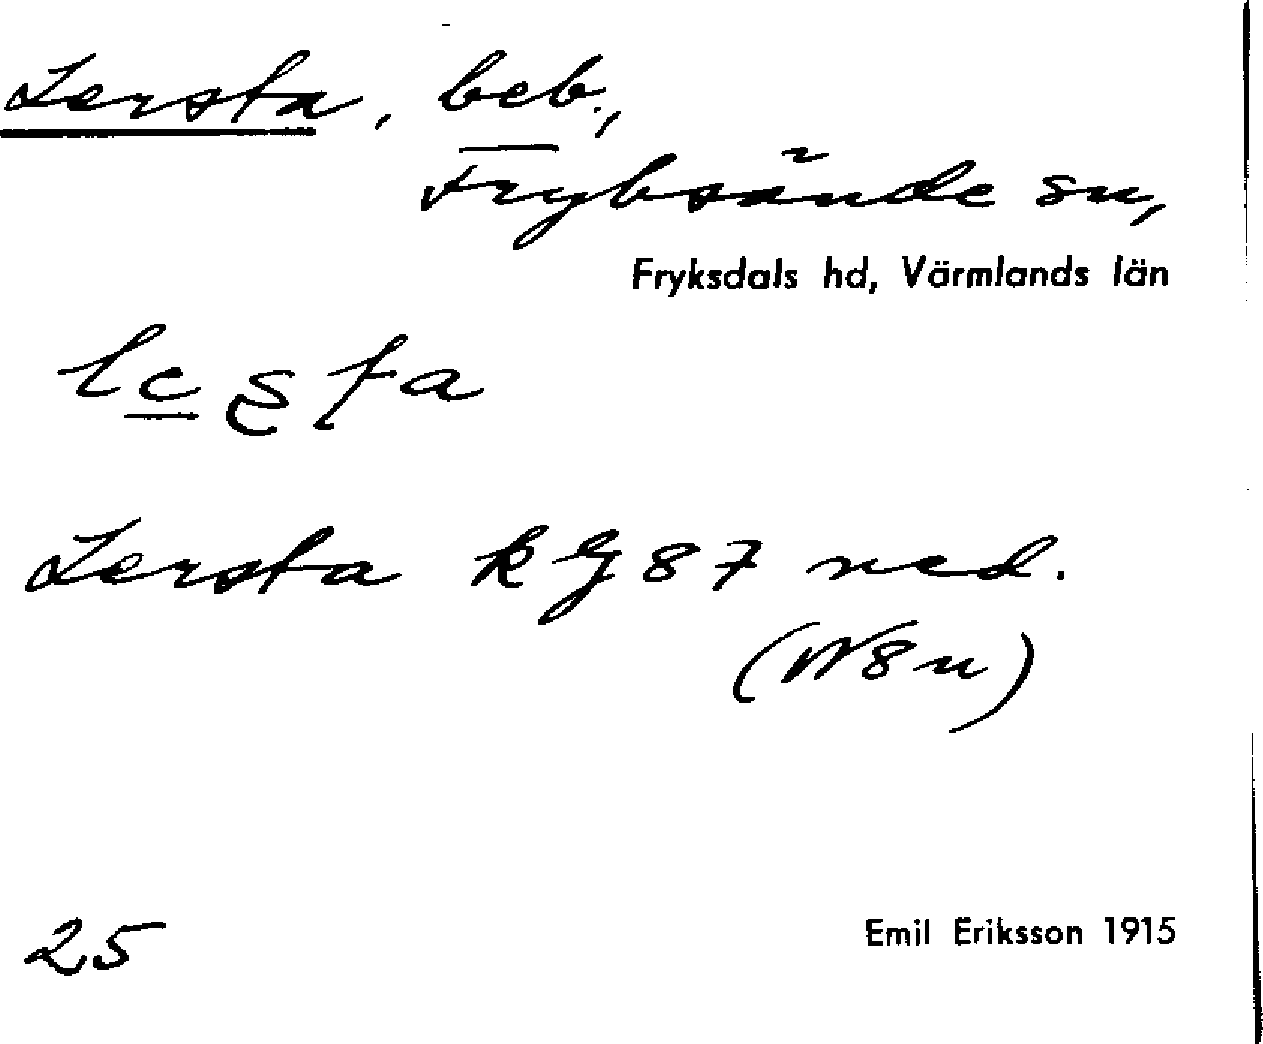 Lersta, beb.,
Fryksände sn,
Fryksdals hd, Värmlands län
Lersta RG 87 ned.
(W8n)
25
Emil Eriksson 1915